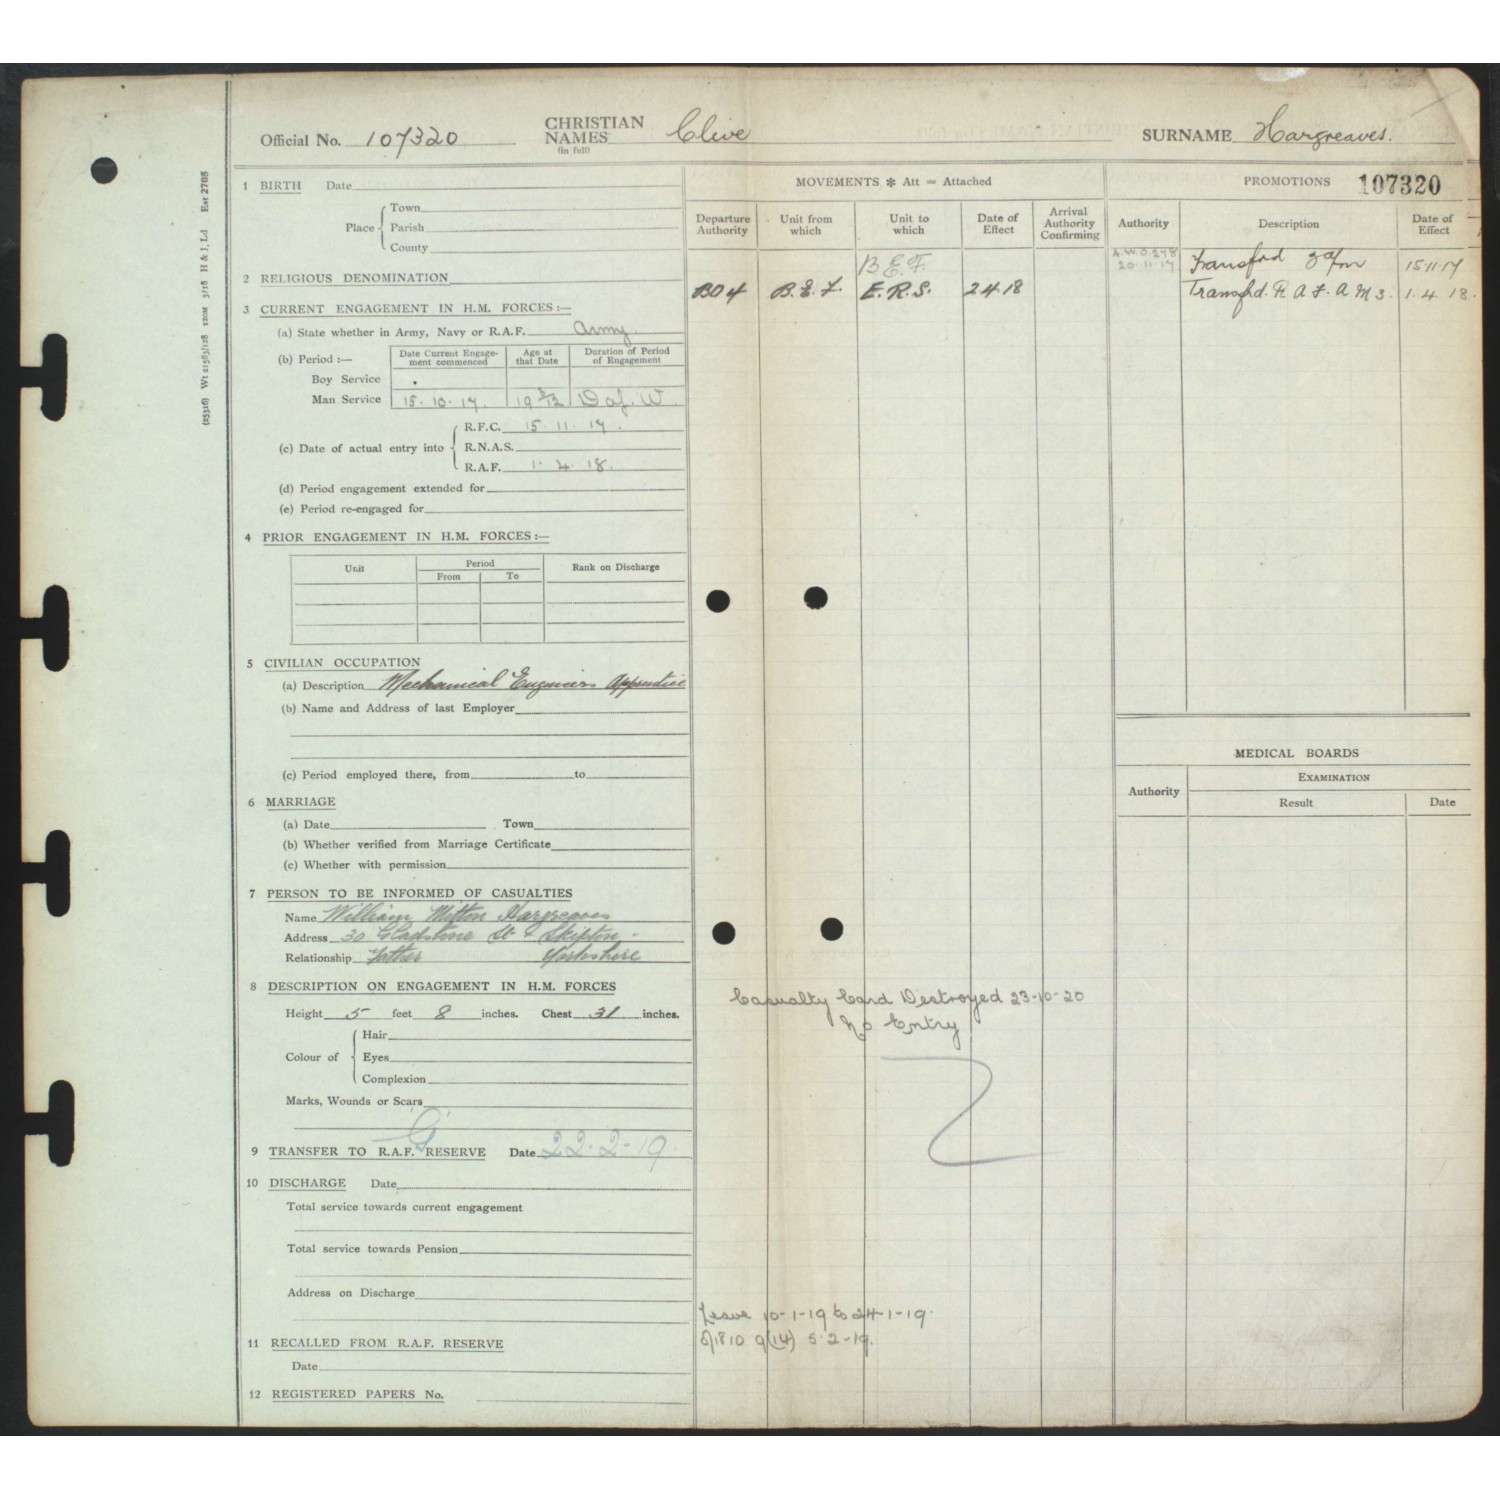 Official No. 107320 CHRISTIAN NAMES (in full) Clive SURNAME Hargreaves.
(25316) Wt 21583/128 120M 3/18 H & J, Ld Est 2705
1 BIRTH Date
Place Town
Parish
County
2 RELIGIOUS DENOMINATION
3 CURRENT ENGAGEMENT IN H.M. FORCES :—
(a) State whether in Army, Navy or R.A.F. Army
(b) Period :— Date Current Engagement commenced Age at that Date Duration of Period of Engagement
Boy Service
Man Service 15.10.17. 19 3/12 D of. W.
(c) Date of actual entry into R.F.C. 15.11.17.
R.N.A.S.
R.A.F. 1.4.18.
(d) Period engagement extended for
(e) Period re-engaged for
4 PRIOR ENGAGEMENT IN H.M. FORCES :—
Unit Period Rank on Discharge
From To
5 CIVILIAN OCCUPATION
(a) Description Mechanical Engineers Apprentice
(b) Name and Address of last Employer
(c) Period employed there, from to
6 MARRIAGE
(a) Date Town
(b) Whether verified from Marriage Certificate
(c) Whether with permission
7 PERSON TO BE INFORMED OF CASUALTIES
Name William Mitton Hargreaves
Address 30 Gladstone St Skipton.
Relationship Father Yorkshire
8 DESCRIPTION ON ENGAGEMENT IN H.M. FORCES
Height 5 feet 8 inches. Chest 31 inches.
Colour of Hair
Eyes
Complexion
Marks, Wounds or Scars
9 TRANSFER TO R.A.F. G RESERVE Date 22-2-19
10 DISCHARGE Date
Total service towards current engagement
Total service towards Pension
Address on Discharge
11 RECALLED FROM R.A.F. RESERVE
Date
12 REGISTERED PAPERS No.
MOVEMENTS * Att = Attached
Departure Authority Unit from which Unit to which Date of Effect Arrival Authority Confirming
B.E.F.
BO4 B.E.F. E.R.S. 2418
Casualty Card Destroyed 23-10-20
No Entry
Leave 10-1-19 to 24-1-19.
9(14) 5-2-19.
PROMOTIONS 107320
Authority Description Date of Effect
A.W.O.278 20.11.17 Transfrd 3a/m 15.11.17
Transfrd. R A F. A M 3. 1.4.18.
MEDICAL BOARDS
Authority EXAMINATION
Result Date